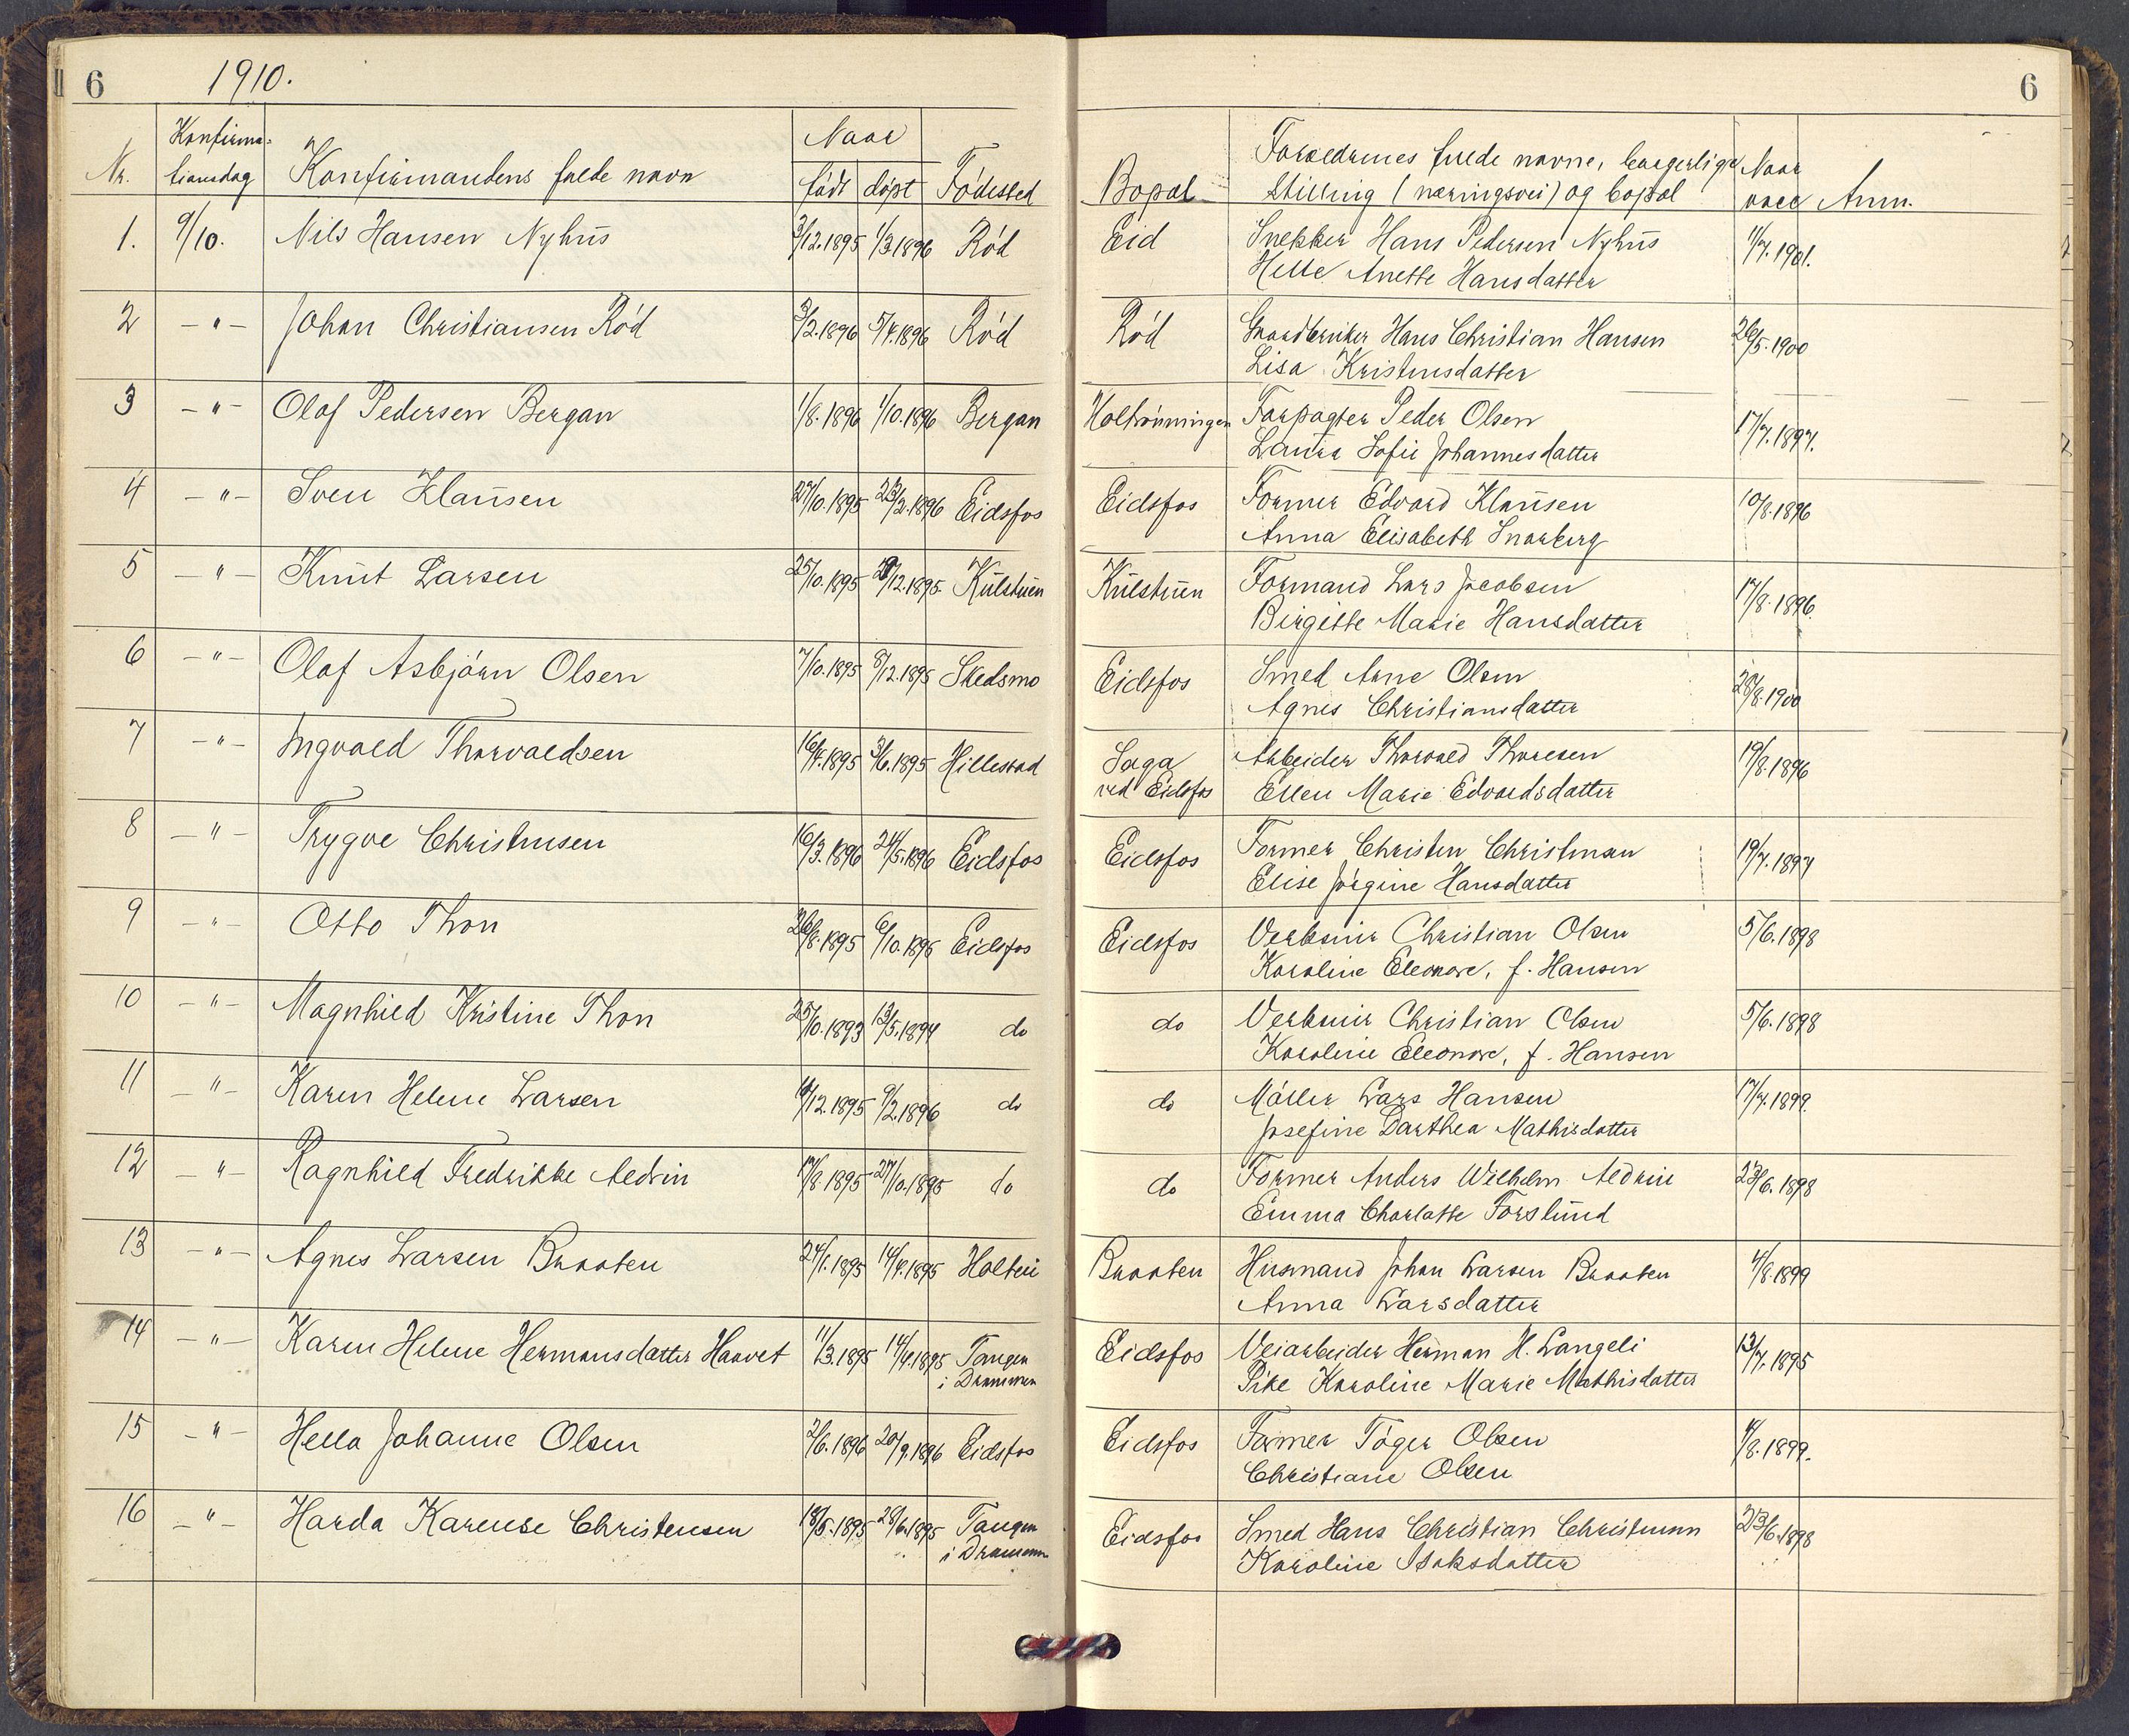 6 1910. 6
Nr. Konfirma- Konfirmandens fulde navn Naar Fødested Bopæl Forældrenes fulde navne, borgerlige Naar Anm.
tionsdag født døpt Stilling (næringsvei) og bopæl vacc
1. 9/10. Nils Hansen Nyhus 3/12.1895 1/3.1896 Rød Eid Snekker Hans Pedersen Nyhus 11/7.1901.
Helle Anette Hansdatter
2 -"- Johan Christiansen Rød 3/2.1896 5/4.1896 Rød Rød Gaardbruker Hans Christian Hansen 26/5.1900
Lisa Kristensdatter
3 -"- Olaf Pedersen Bergan 1/8.1896 1/10.1896 Bergan Holtrønningen Forpagter Peder Olsen 17/7.1897.
Laura Sofie Johannesdatter
4 -"- Sven Klausen 27/10.1895 23/2.1896 Eidsfos Eidsfos Former Edvard Klausen 10/8.1896
Anna Elisabeth Snarberg
5 -"- Knut Larsen 25/10.1895 /12.1895. Kulstuen Kulstuen Formand Lars Jacobsen 17/8.1896.
Birgitte Marie Hansdatter
6 -"- Olaf Asbjørn Olsen 7/10.1895 8/12.1895 Skedsmo Eidsfos Smed Arne Olsen 28/8.1900
Agnes Christiansdatter
7 -"- Ingvald Thorvaldsen 16/4.1895 3/6.1895 Hillestad Saga Arbeider Thorvald Thoresen 19/8.1896
ved Eidsfos Ellen Marie Edvardsdatter
8 -"- Trygve Christensen 16/3.1896 24/5.1896 Eidsfos Eidsfos Former Christen Christensen 19/7.1897
Elise Jørgine Hansdatter
9 -"- Otto Thon 26/8.1895 6/10.1895 Eidsfos Eidsfos Verkseier Christian Olsen 5/6.1898
Karoline Eleonore, f. Hansen
10 -"- Magnhild Kristine Thon 25/10.1893 13/5.1894 do do Verkseier Christian Olsen 5/6.1898
Karoline Eleonore, f. Hansen
11 "- Karen Helene Larsen /12.1895 9/2.1896 do do Møller Lars Hansen 17/7.1899.
Josefine Darthea Mathisdatter
12 -"- Ragnhild Fredrikke Aldrin 17/8.1895 27/10.1895 do do Former Anders Wilhelm Aldrin 23/6.1898
Emma Charlotte Forslund
13 -"- Agnes Larsen Braaten 24/1.1895 14/4.1895 Holtei Braaten Husmand Johan Larsen Braaten 4/8.1899
Anna Larsdatter
14 -"- Karen Helene Hermansdatter Haavet 11/3.1895 14/4.1895 Tangen Eidsfos Veiarbeider Herman H. Langeli 13/7.1895
i Drammen Pike Karoline Marie Mathisdatter
15 -"- Hella Johanne Olsen 2/6.1896 20/9.1896 Eidsfos Eidsfos Former Tøger Olsen /8.1899.
Christiane Olsen
16 -"- Harda Karense Christensen 18/5.1895 28/6.1895 Tangen Eidsfos Smed Hans Christian Christensen 23/6.1898
i Drammen Karoline Isaksdatter